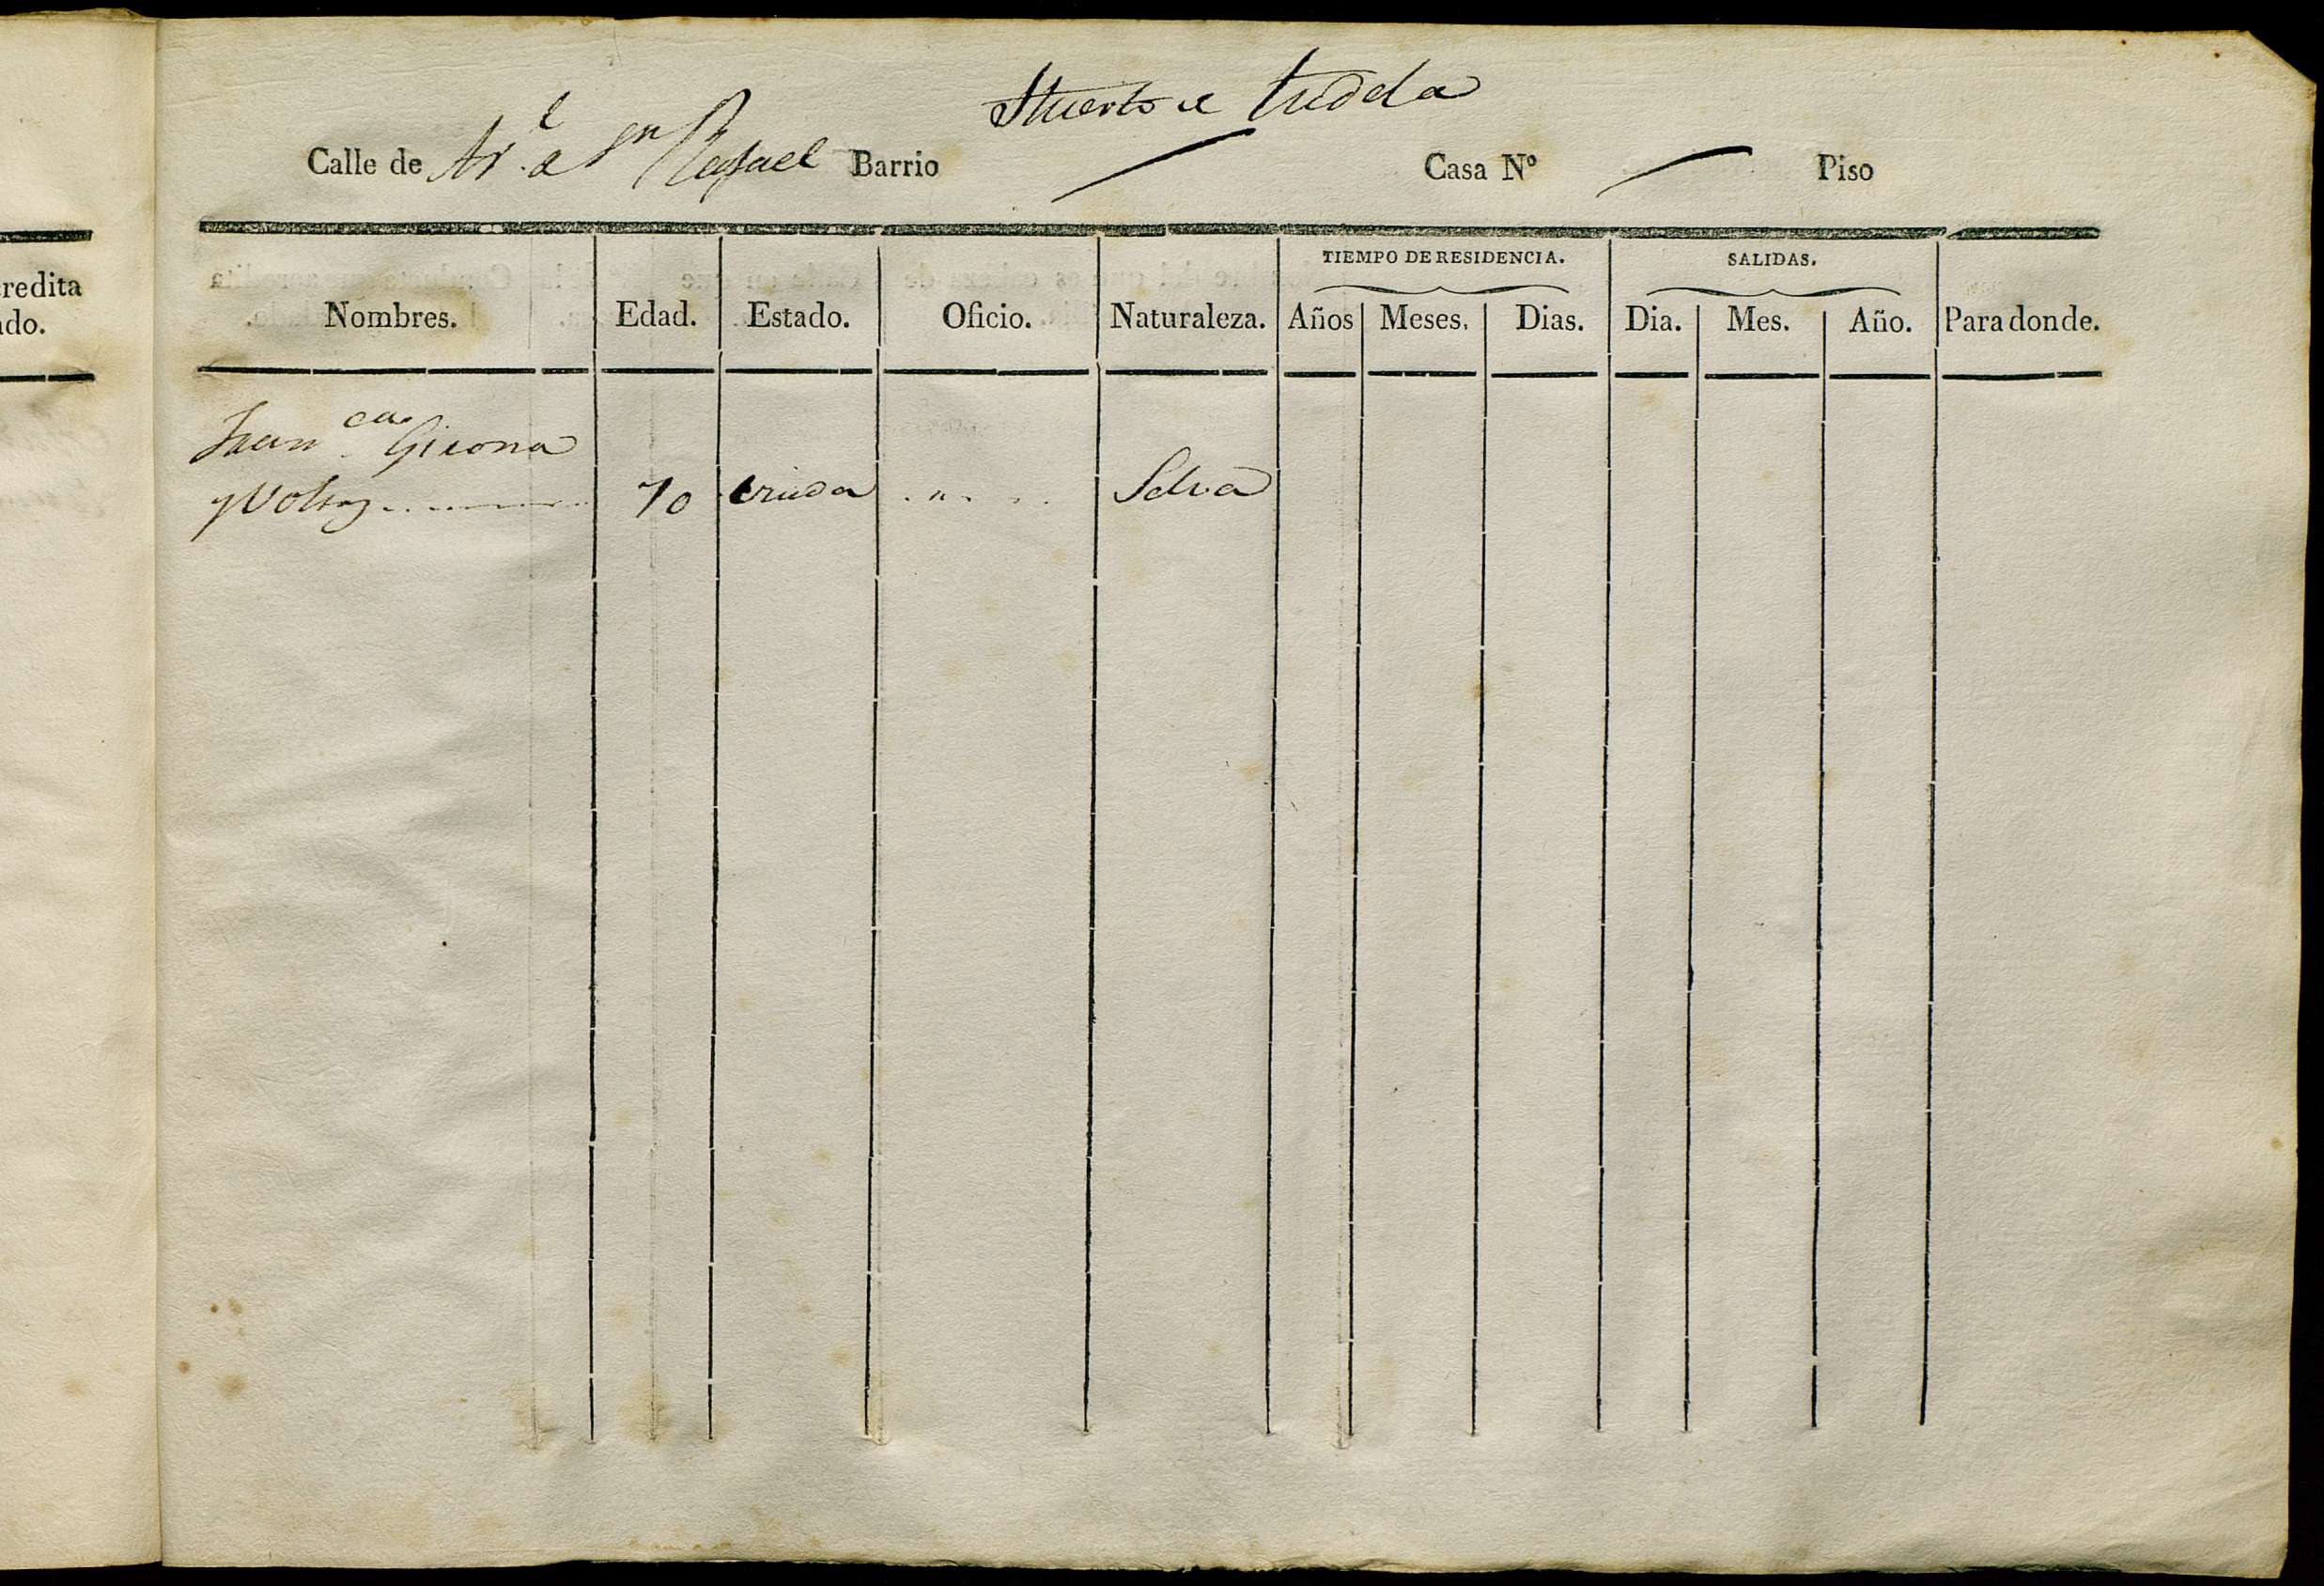 Huerto de tudela
Calle de Arl. de Sn Rafael Barrio Casa Nº Piso
redita
do.
TIEMPO DE RESIDENCIA. SALIDAS.
Nombres. Edad. Estado. Oficio. Naturaleza. Años Meses. Dias. Dia. Mes. Año. Para donde.
Franca Girona
y Voltas 70 viuda Selva